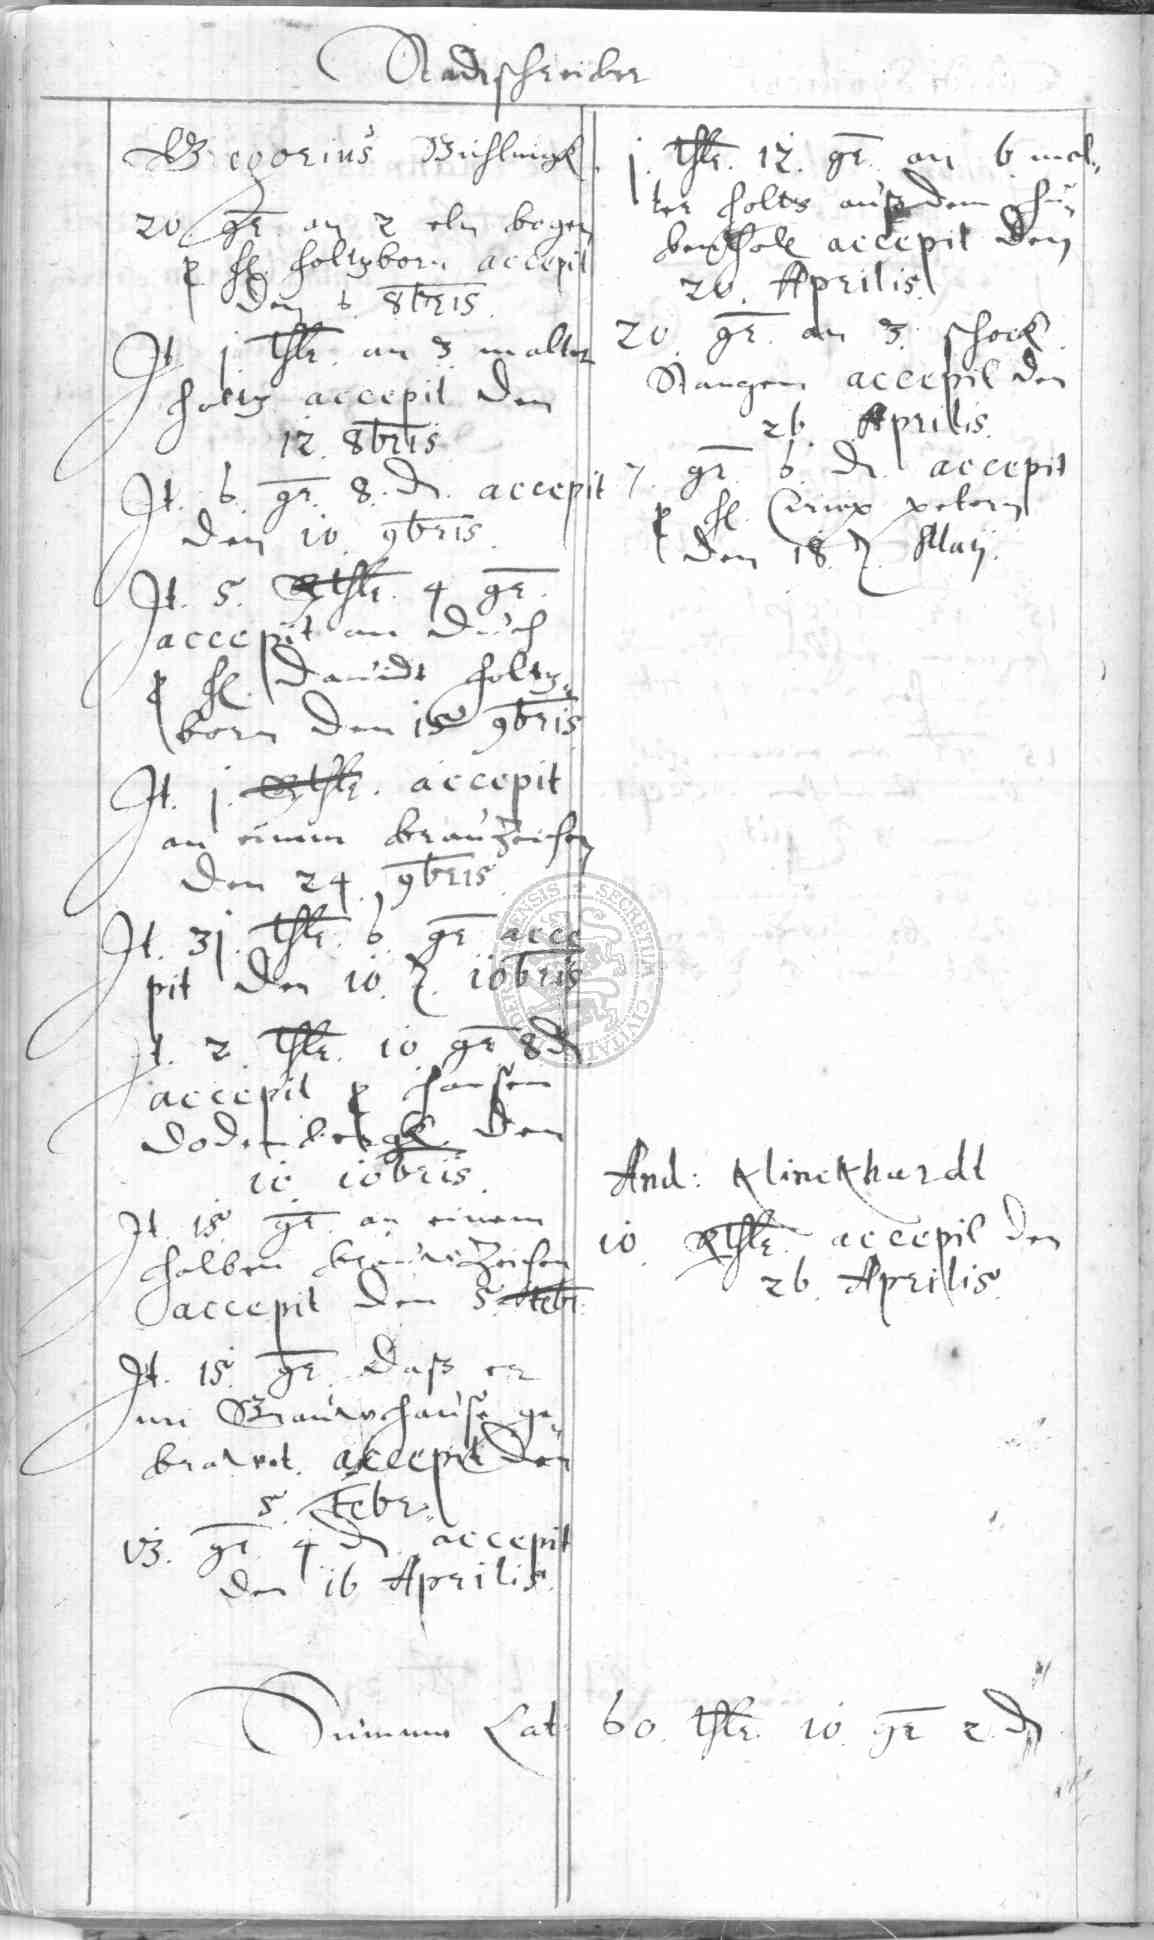 Stadtschreiber
Gregorius
20 gr an 2 eln bogen
p H. Holtzborn accepit
den 6. 8bris.
It. j thlr. an 3 malter
holtz accepit den
12. 8bris
It. 6. gr. 8. d. accepit
den 10. 9bris.
It. 5. thlr. 4 gr.
accepit an duch
p H. Dauidt Holtz-
born den 15 9bris
It. j. thlr. accepit
an einem brauzeichen
den 24. 9bris
It. 3j. thlr. 6 gr acce
pit den 10. 10bris
It. 2. thlr. 10 gr 8 d
accepit p Hansen
den
10. 10bris.
It. 15. gr. an einem
halben brauwzeichen
accepit den 5. febr.
It. 15. gr. daß er
im Brauwhause ge-
brauwet. accepit den
5. febr.
13. gr. 4 d. accepit
den 16 Aprilis.
j. thlr. 12. gr. an 6 mal-
ter holtz auß dem
accepit den
20. Aprilis.
20. gr. an 3. schock
Stangen accepit den
26. Aprilis.
7. gr. 6. d. accepit
p H.
den 18. Maij.
And: Klinckhardt
10 thlr. accepit den
26. Aprilis.
Summa Lat. 60. thlr. 10. gr 2 d
SECRETUM CIVITATIS